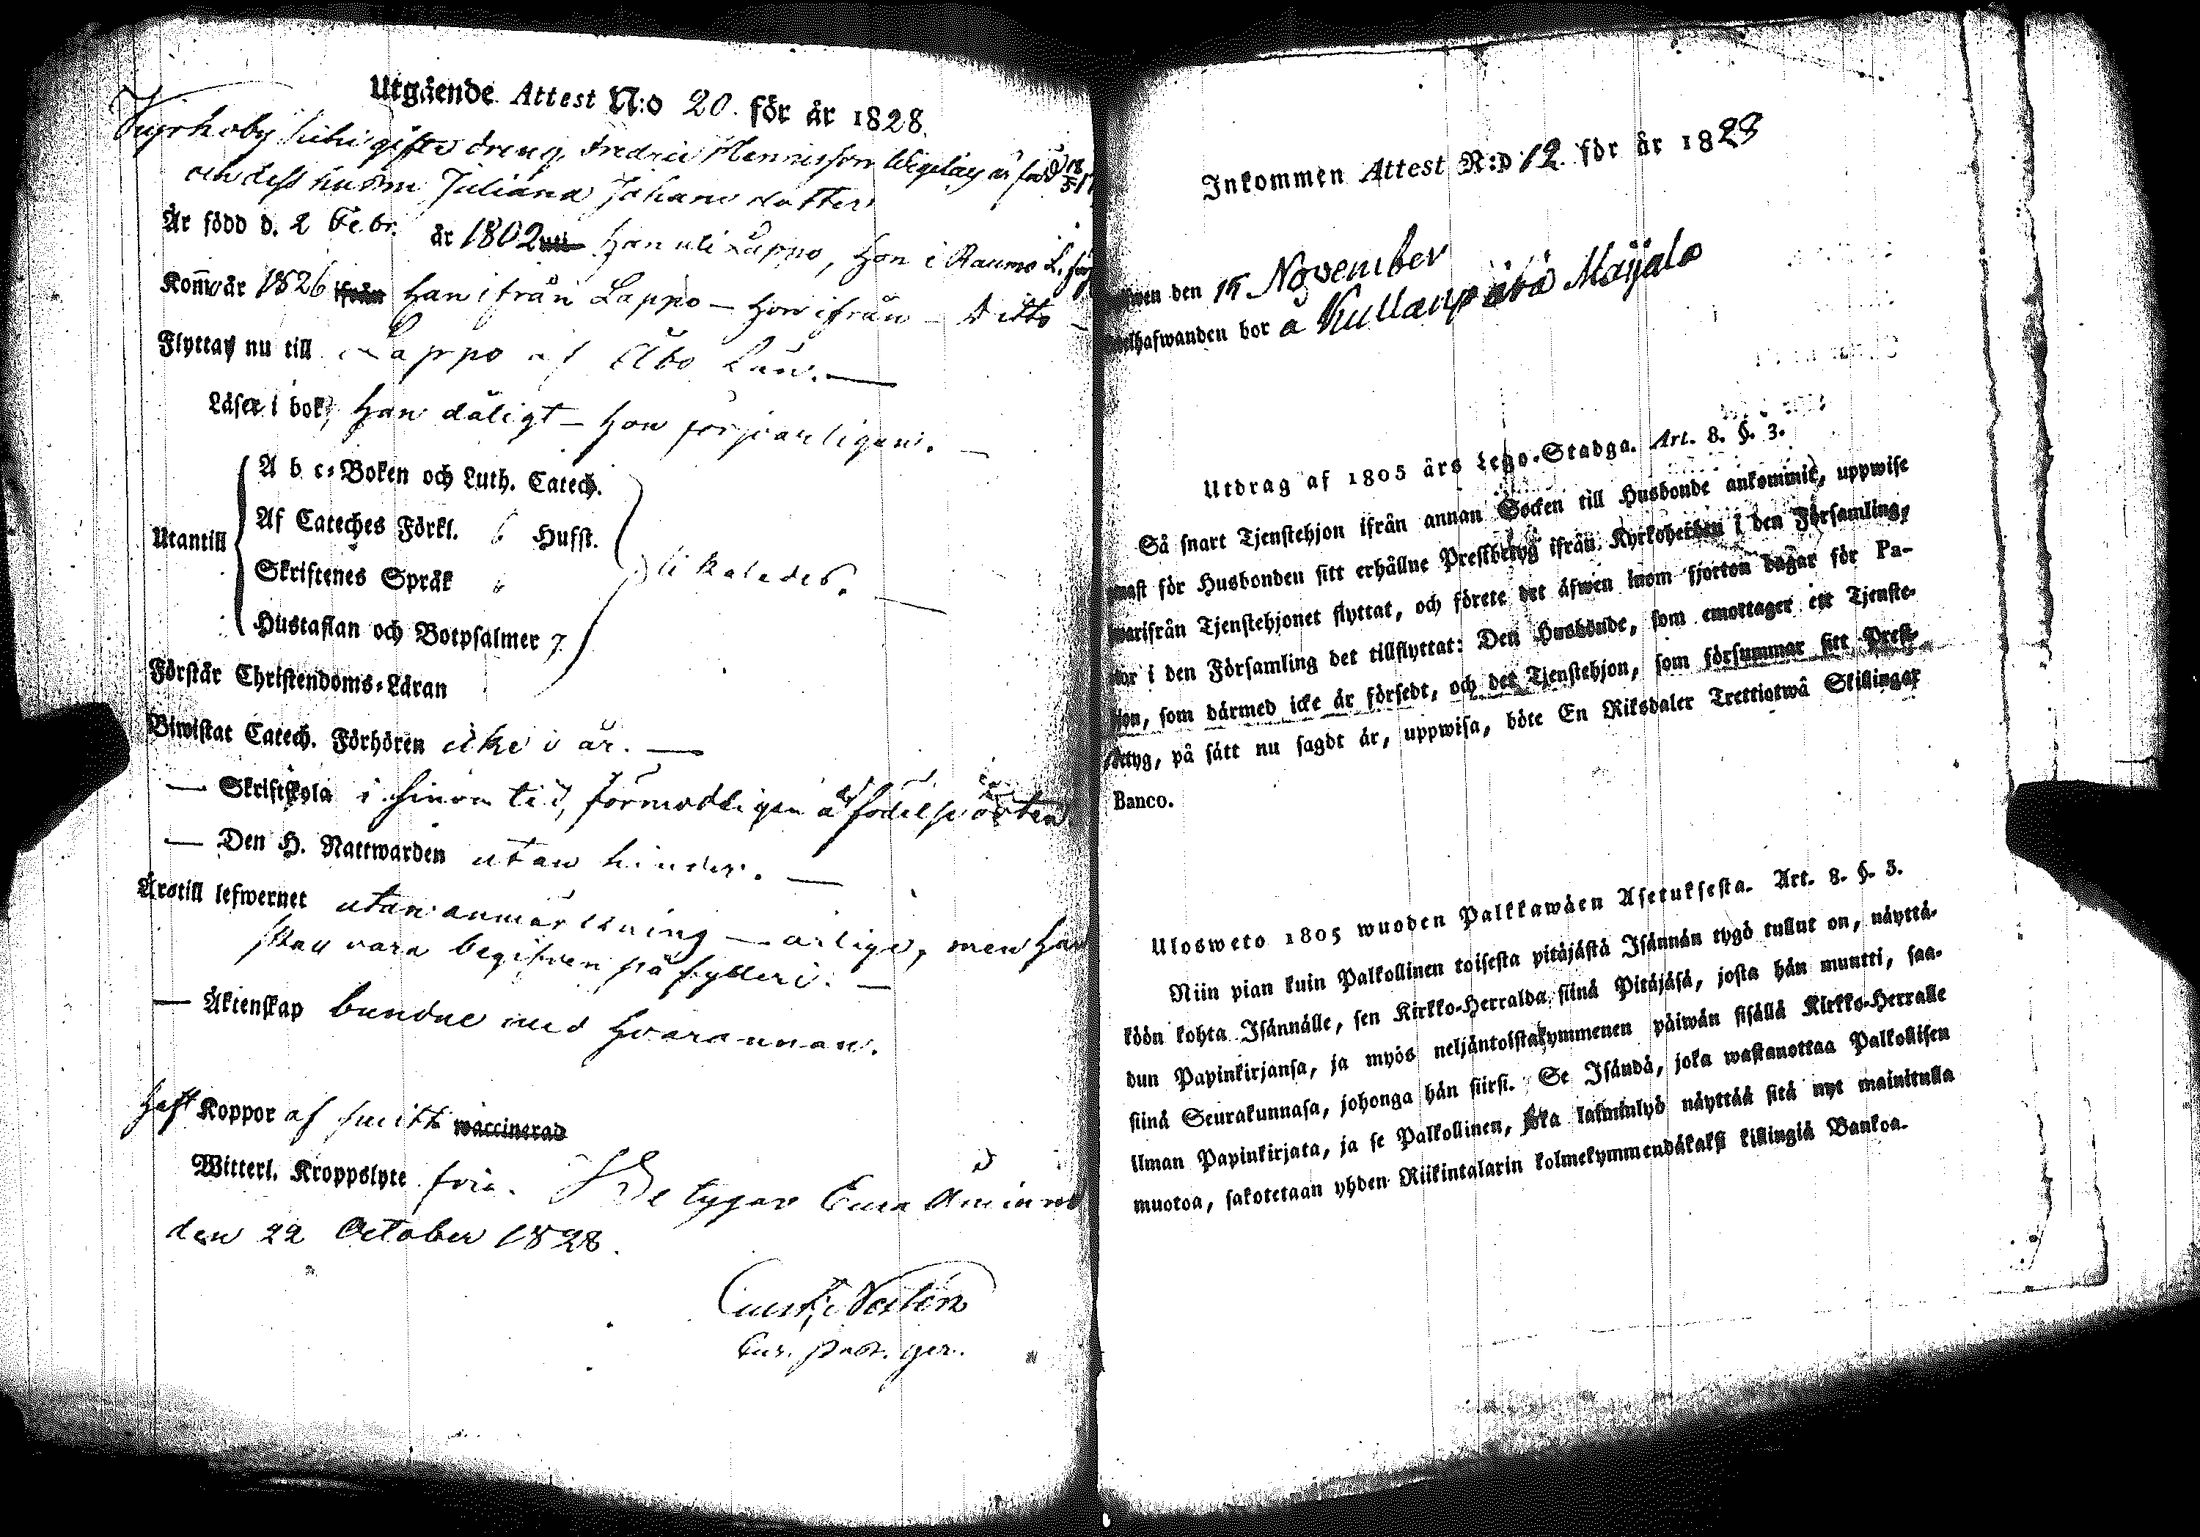 Utgående Attest N:o 20. för år 1828.
Kyrkoby gifte dreng Fredric Henricsson är född
och dess hustru Juliana Johans dotter
År född d. 2 Febr. år 1802 Han uti Lappo, Hon i Raumo
Kom̄o år 1826 ifrån Han ifrån Lappo – Hon ifrån – Ditto –
Flyttas nu till Lappo af Åbo Län. —
Läser i bok, Han dåligt – Hon försvarligen. —
Utantill
A b c-Boken och Luth. Catech.
Af Cateches Förkl. Husst.
Skriftenes Språk
Hustaflan och Botpsalmer 7.
likaledes. —
Förstår Christendoms-Läran
Biwistat Catech. Förhören icke i år. —
— Skriftskola i sinom tid, förmodligen å födelse orten
— Den H. Nattwarden utan hinder. —
Äro till lefwernet utan anmärkning — ärliga, men Han
skall vara begifven på fylleri. —
— Äktenskap bundne med hvarannan.
Haft Koppor af smitt waccinerad
Witterl. Kroppslyte fria. Betygar Eura
den 22 October 1828.
Past. ger.
Inkommen Attest N:o 12 för år 1828
den 15 November
bor å Kullanpää Maijala
Utdrag af 1805 års Lego-Stadga. Art. 8. §. 3.
Så snart Tjenstehjon ifrån annan Socken till Husbonde ankommit, uppwise
för Husbonden sitt erhållne Prestbetyg ifrån Kyrkoherden i den Församling,
warifrån Tjenstehjonet flyttat, och förete det äfwen inom fjorton dagar för Pa-
stor i den Församling det tillflyttat: Den Husbonde, som emottager ett Tjenste-
hjon, som därmed icke är försedt, och det Tjenstehjon, som försummar sitt Prest-
betyg, på sätt nu sagdt är, uppwisa, böte En Riksdaler Trettiotwå Skillingar
Banco.
Ulosweto 1805 wuoden Palkkawäen Asetuksesta. Art. 8. §. 3.
Niin pian kuin Palkollinen toisesta pitäjästä Isännän tygö tullut on, näyttä-
köön kohta Isännälle, sen Kirkko-Herralda siinä Pitäjäsä, josta hän muutti, saa-
dun Papinkirjansa, ja myös neljäntoistakymmenen päiwän sisällä Kirkko-Herralle
siinä Seurakunnasa, johonga hän siirsi. Se Isändä, joka wastanottaa Palkollisen
ilman Papinkirjata, ja se Palkollinen, joka laiminlyö näyttää sitä nyt mainitulla
muotoa, sakotetaan yhden Riikintalarin kolmekymmendäkaksi killingiä Bankoa.